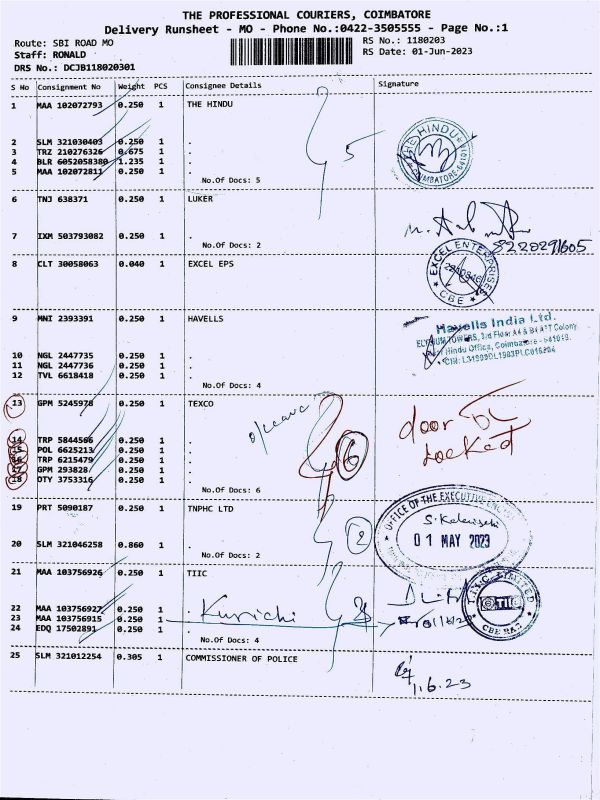 THE PROFESSIONAL COURIERS, COIMBATORE
Delivery Runsheet - MO - Phone No.:0422-3505555 - Page No.:1
Route: SBI ROAD MO
RS No.: 1180203
Staff: RONALD
RS Date: 01-Jun-2023
DRS No.: DCJB118020301
S No Consignment No Weight PCS Consignee Details Signature
1 MAA 102072793 0.250 1 THE HINDU
2 SLM 321030403 0.250 1 .
3 TRZ 210276326 0.675 1 .
4 BLR 6052058380 1.235 1 .
5 MAA 102072811 0.250 1 .
No.Of Docs: 5
5
THE HINDU
COIMBATORE
6 TNJ 638371 0.250 1 LUKER
7 IXM 503793082 0.250 1 .
No.Of Docs: 2
8220291605
8 CLT 30058063 0.040 1 EXCEL EPS
EXCEL ENTERPRISES
CBE
9 MNI 2393391 0.250 1 HAVELLS
Havells India Ltd.
ELYSIUM TOWERS, 3rd Floor
Hindu Office, Coimbatore - 641018.
10 NGL 2447735 0.250 1 .
11 NGL 2447736 0.250 1 .
12 TVL 6618418 0.250 1 .
No.Of Docs: 4
13 GPM 5245978 0.250 1 TEXCO
door
Locked
14 TRP 5844566 0.250 1 .
15 POL 6625213 0.250 1 .
16 TRP 6215479 0.250 1 .
17 GPM 293828 0.250 1 .
18 OTY 3753316 0.250 1 .
No.Of Docs: 6
6
19 PRT 5090187 0.250 1 TNPHC LTD
OFFICE OF THE EXECUTIVE
01 MAY 2023
20 SLM 321046258 0.860 1 .
No.Of Docs: 2
2
21 MAA 103756926 0.250 1 TIIC
T.I.I.C. LIMITED
TIIC
22 MAA 103756927 0.250 1 .
23 MAA 103756915 0.250 1 .
24 EDQ 17502891 0.250 1 .
No.Of Docs: 4
Kurichi
25 SLM 321012254 0.305 1 COMMISSIONER OF POLICE
1.6.23